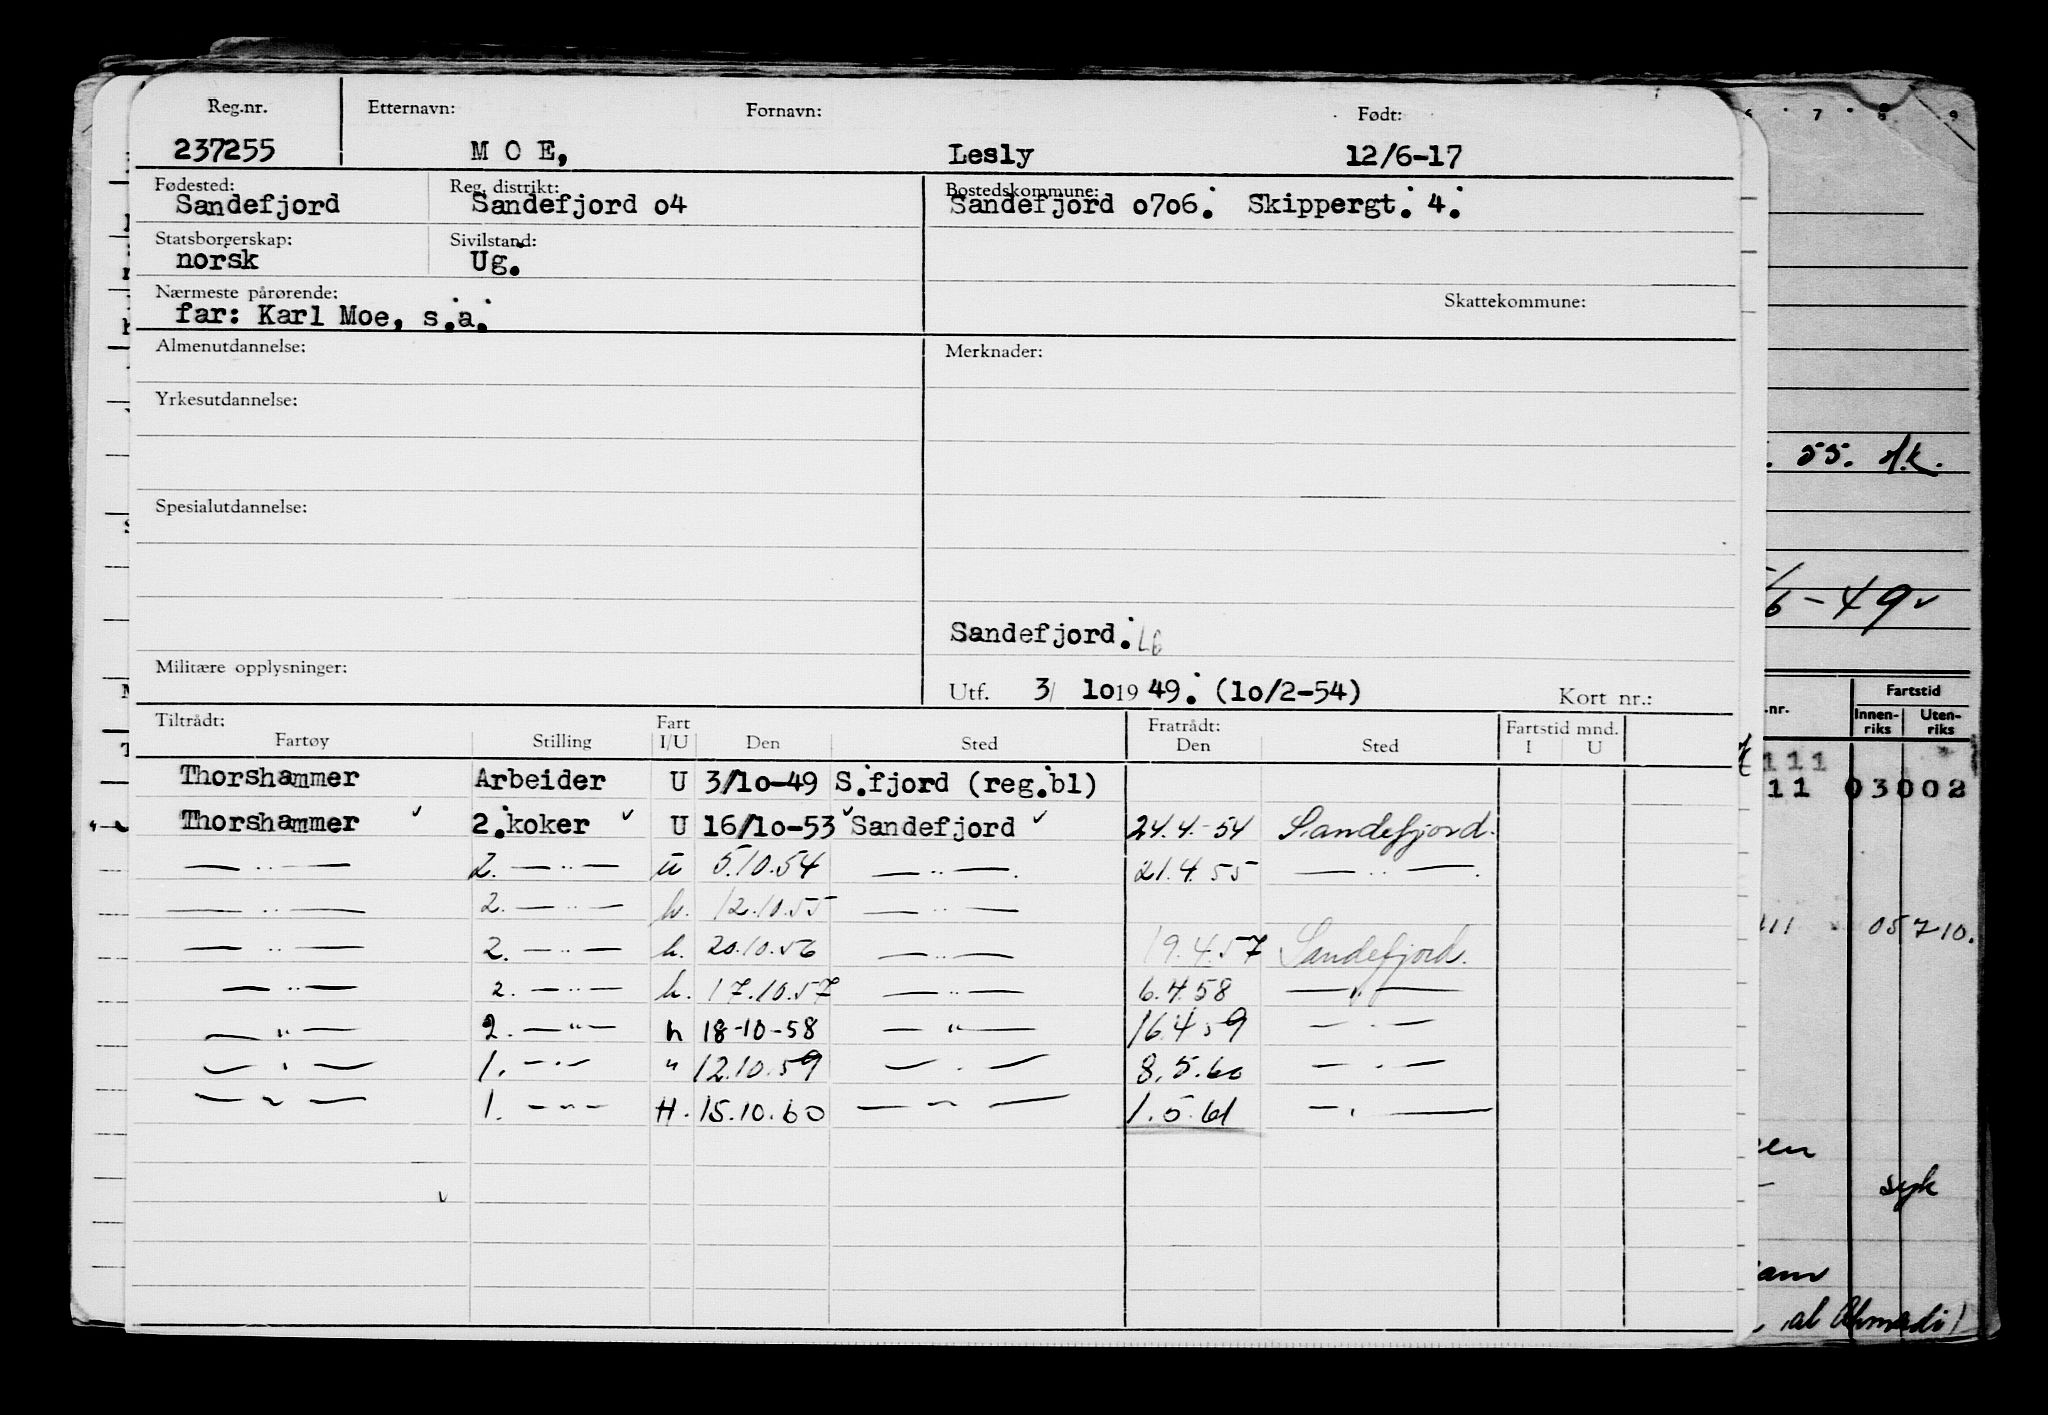 Reg.nr. Etternavn: Fornavn: Født:
237255 M O E, Lesly 12/6-17
Fødested: Reg. distrikt: Bostedskommune:
Sandefjord Sandefjord o4 Sandefjord o7o6. Skippergt. 4.
Statsborgerskap: Sivilstand:
norsk Ug.
Nærmeste pårørende: Skattekommune:
far: Karl Moe, s.a.
Almenutdannelse: Merknader:
Yrkesutdannelse:
Spesialutdannelse:
Sandefjord.
Militære opplysninger:
Utf. 3/ 1o 19 49. (1o/2-54) Kort nr.:
Tiltrådt: Fart Fratrådt: Fartstid mnd.
Fartøy Stilling I/U Den Sted Den Sted I U
Thorshammer Arbeider U 3/1o-49 S.fjord (reg.bl)
Thorshammer 2.koker U 16/1o-53 Sandefjord 24.4.-54 Sandefjord.
— .. — 2. — .. — u 5.10.54 — .. —. 21.4.55 — .. —.
— .. — 2. — .. — h. 12.10.55 — .. —
— .. — 2. — .. — h. 20.10.56 — .. — 19.4.57 Sandefjord.
— .. — 2. — .. — h. 17.10.57 — .. — 6.4.58 — " —
— " — 2. — " — h 18-10-58 — " — 16.4.59 — . —
— . — 1. — . — " 12.10.59 — . — 8.5.60 — . —
— " — 1. — " — H. 15.10.60 — " — 1.5.61 — . —
6 7 8 9
55. d.k.
6-49
.nr. Fartstid
Innen-riks Uten-riks
111
11 03002
111 05710.
en
syk
al Ahmadi)